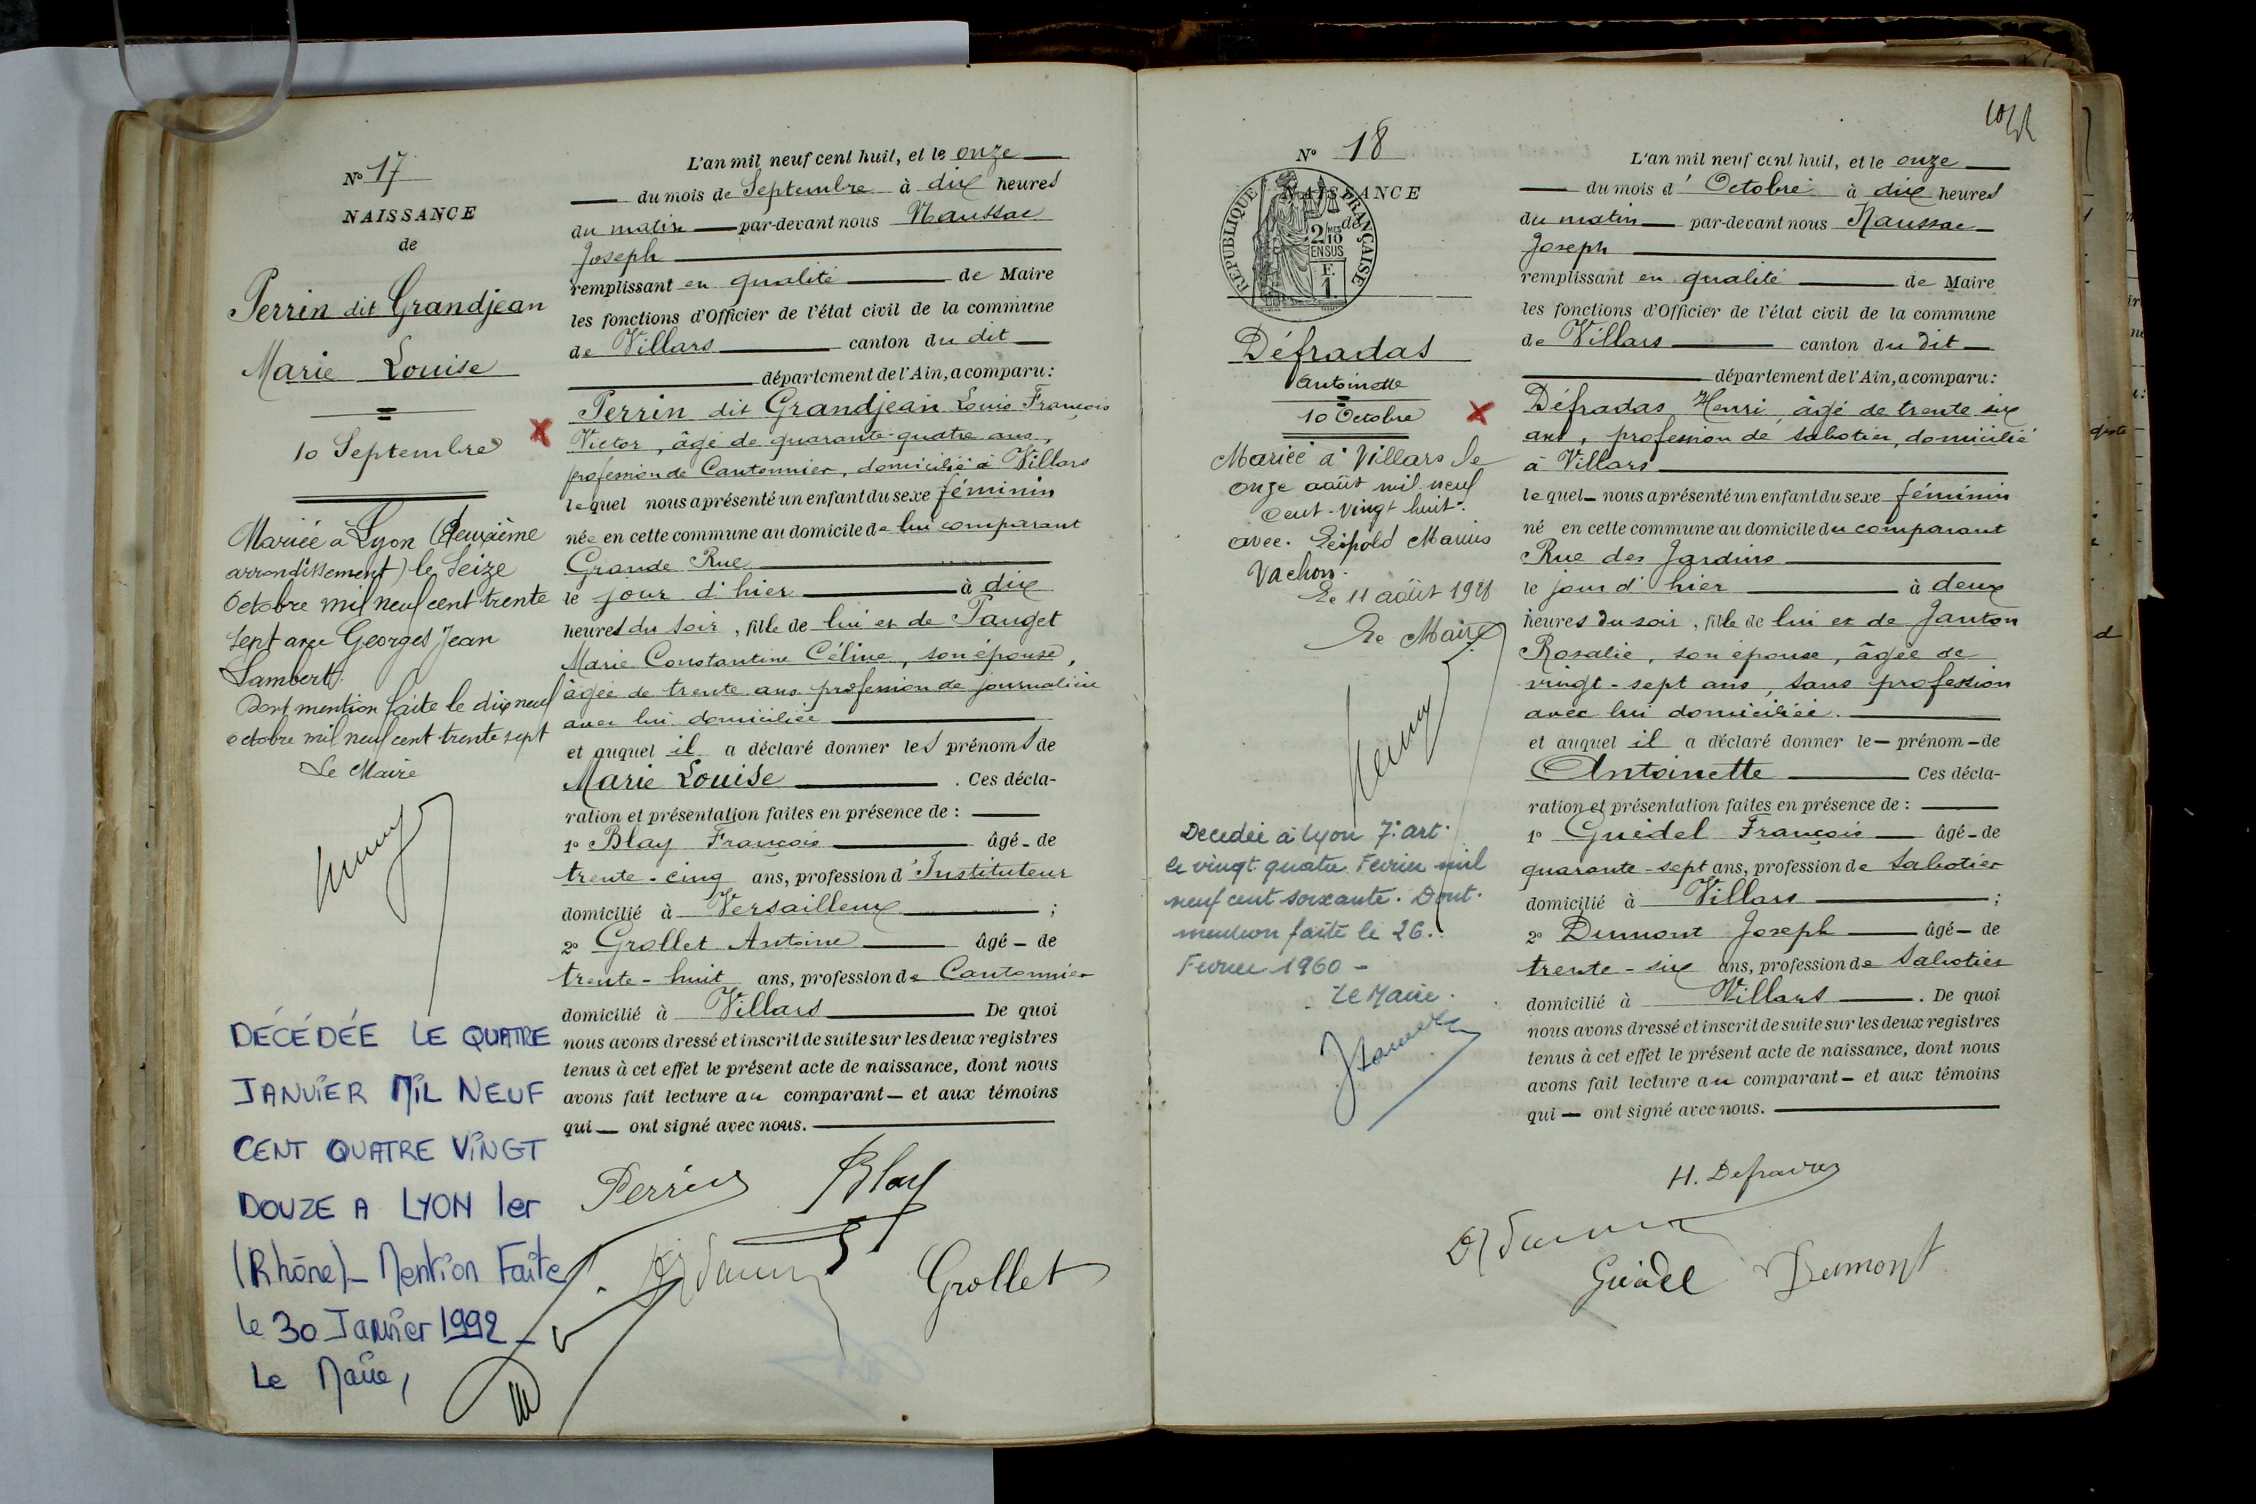 N° 17
NAISSANCE
de
Perrin dit Grandjean
Marie Louise
10 Septembre
Mariée à Lyon (deuxième
arrondissement) le Seize
Octobre mil neuf cent trente
sept avec Georges Jean
Lambert.
Dont mention faite le dix neuf
octobre mil neuf cent trente sept
Le Maire
DÉCÉDÉE LE QUATRE
JANVIER MIL NEUF
CENT QUATRE VINGT
DOUZE A LYON 1er
(Rhône)_ Mention Faite
le 30 Janvier 1992_
Le Maire,
L'an mil neuf cent huit, et le onze
du mois de Septembre à dix heures
du matin par-devant nous Naussac
Joseph
remplissant en qualité de Maire
les fonctions d'Officier de l'état civil de la commune
de Villars canton du dit
département de l'Ain, a comparu:
Perrin dit Grandjean Louis François
Victor, âgé de quarante-quatre ans,
profession de Cantonnier, domicilié à Villars
lequel nous a présenté un enfant du sexe féminin
née en cette commune au domicile de lui comparant
Grande Rue
le jour d'hier à dix
heures du soir, fille de lui et de Pauget
Marie Constantine Céline, son épouse,
âgée de trente ans profession de journalière
avec lui domiciliée
et auquel il a déclaré donner les prénoms de
Marie Louise. Ces décla-
ration et présentation faites en présence de :
1° Blay François âgé - de
trente-cinq ans, profession d'Instituteur
domicilié à Versailleux ;
2° Grollet Antoine âgé - de
trente-huit ans, profession de Cantonnier
domicilié à Villars De quoi
nous avons dressé et inscrit de suite sur les deux registres
tenus à cet effet le présent acte de naissance, dont nous
avons fait lecture au comparant - et aux témoins
qui - ont signé avec nous.
Perrin Blay
Grollet
N° 18
NAISSANCE
de
REPUBLIQUE FRANÇAISE
2/10
EN SUS
F.
1
Défradas
Antoinette
10 Octobre
Mariée à Villars le
onze août mil neuf
cent-vingt huit.
avec. Léopold Marius
Vachon.
Le 11 août 1928
Le Maire
Décédée à Lyon 7° arrt.
le vingt quatre Février mil
neuf cent soixante. Dont.
mention faite le 26.
Février 1960 -
Le Maire.
L'an mil neuf cent huit, et le onze
du mois d'Octobre à dix heures
du matin par-devant nous Naussac
Joseph
remplissant en qualité de Maire
les fonctions d'Officier de l'état civil de la commune
de Villars canton du dit
département de l'Ain, a comparu:
Défradas Henri âgé de trente six
ans, profession de sabotier, domicilié
à Villars
lequel - nous a présenté un enfant du sexe féminin
né en cette commune au domicile du comparant
Rue des Jardins
le jour d'hier à deux
heures du soir, fille de lui et de Janton
Rosalie, son épouse, âgée de
vingt-sept ans, sans profession
avec lui domiciliée.
et auquel il a déclaré donner le - prénom - de
Antoinette Ces décla-
ration et présentation faites en présence de :
1° Guédel François âgé - de
quarante-sept ans, profession de Sabotier
domicilié à Villars ;
2° Dumont Joseph âgé - de
trente-six ans, profession de Sabotier
domicilié à Villars. De quoi
nous avons dressé et inscrit de suite sur les deux registres
tenus à cet effet le présent acte de naissance, dont nous
avons fait lecture au comparant - et aux témoins
qui - ont signé avec nous.
H. Defradas
Guédel Dumont